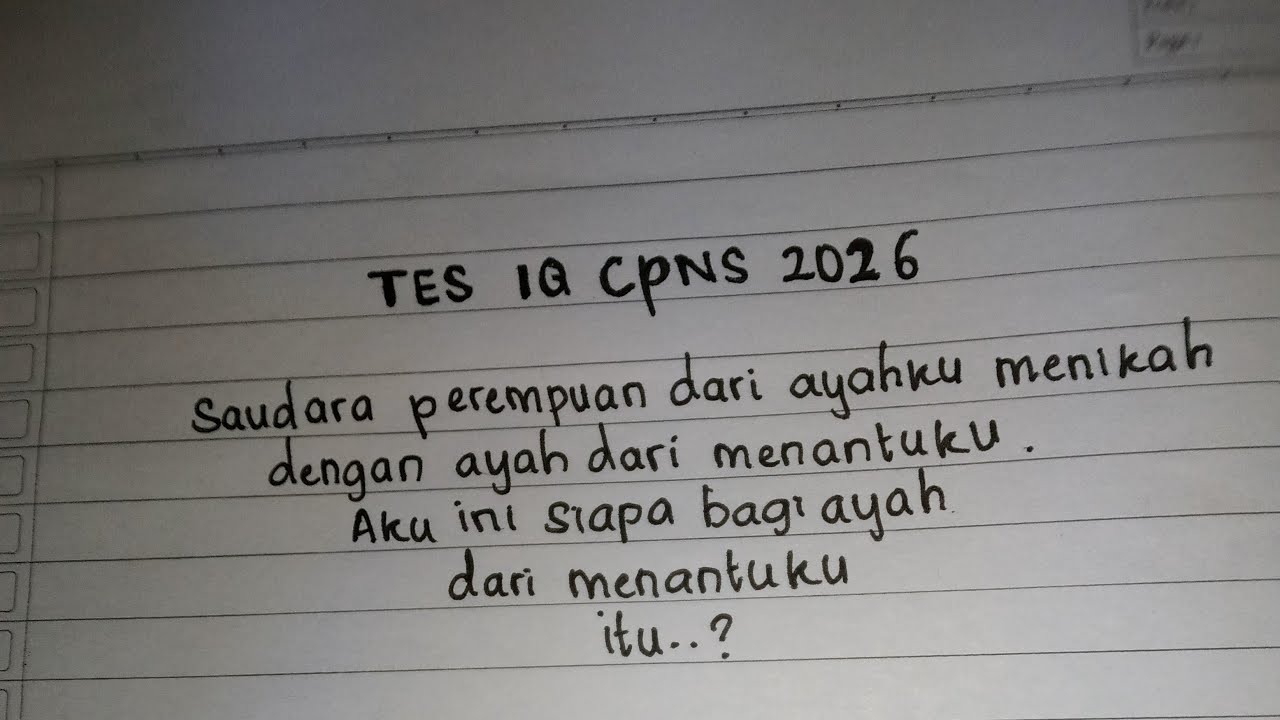 TES IQ CPNS 2026
Saudara perempuan dari ayahku menikah
dengan ayah dari menantuku.
Aku ini siapa bagi ayah
dari menantuku
itu..?